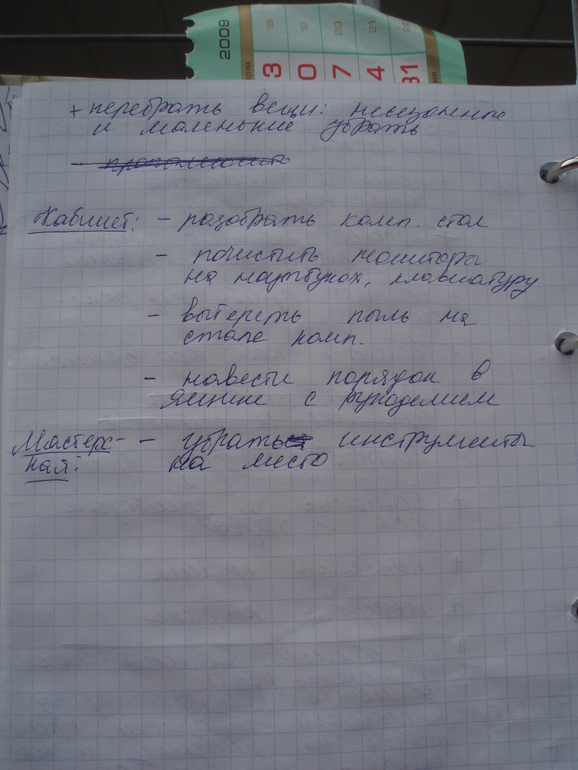 2009
18 19 20 21
3 0 7 4 31
+ перебрать вещи: несезонные
и маленькие убрать
Кабинет: - разобрать комп. стол
- почистить мониторы
на ноутбуках, клавиатуру
- вытереть пыль на
столе комп.
- навести порядок в
ящике с рукоделием
Мастерс- - убрать инструменты
кая: на место